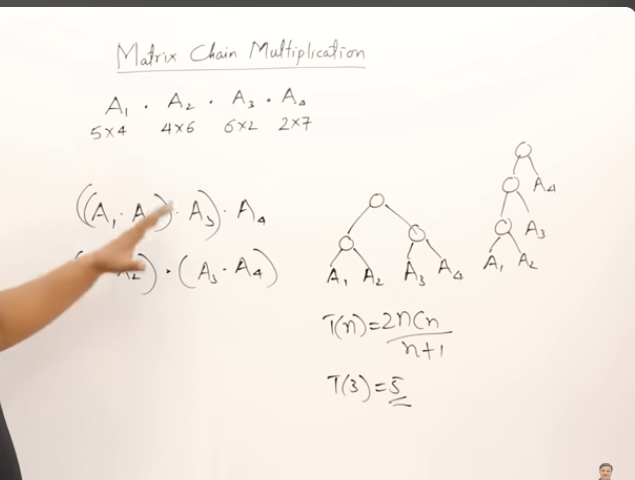 Matrix Chain Multiplication
A₁ · A₂ · A₃ · A₄
5×4 4×6 6×2 2×7
((A₁ · A ) · A₃) · A₄
A₂) · (A₃ · A₄)
A₄
A₃
A₁ A₂
A₁ A₂ A₃ A₄
T(n) = 2nCn
n+1
T(3) = 5